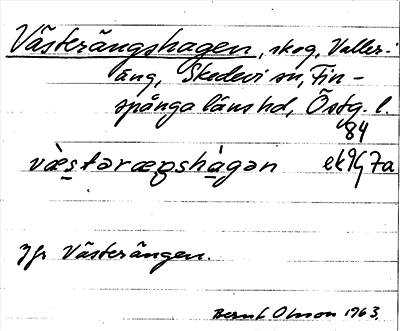 Västerängshagen, skog, Valler-
äng, Skedevi sn, Fin-
spånga läns hd, Östg. l.
84
væ̀stəræŋshàgən ek 9G 7a
Jfr Västerängen.
Bernt Olsson 1963.